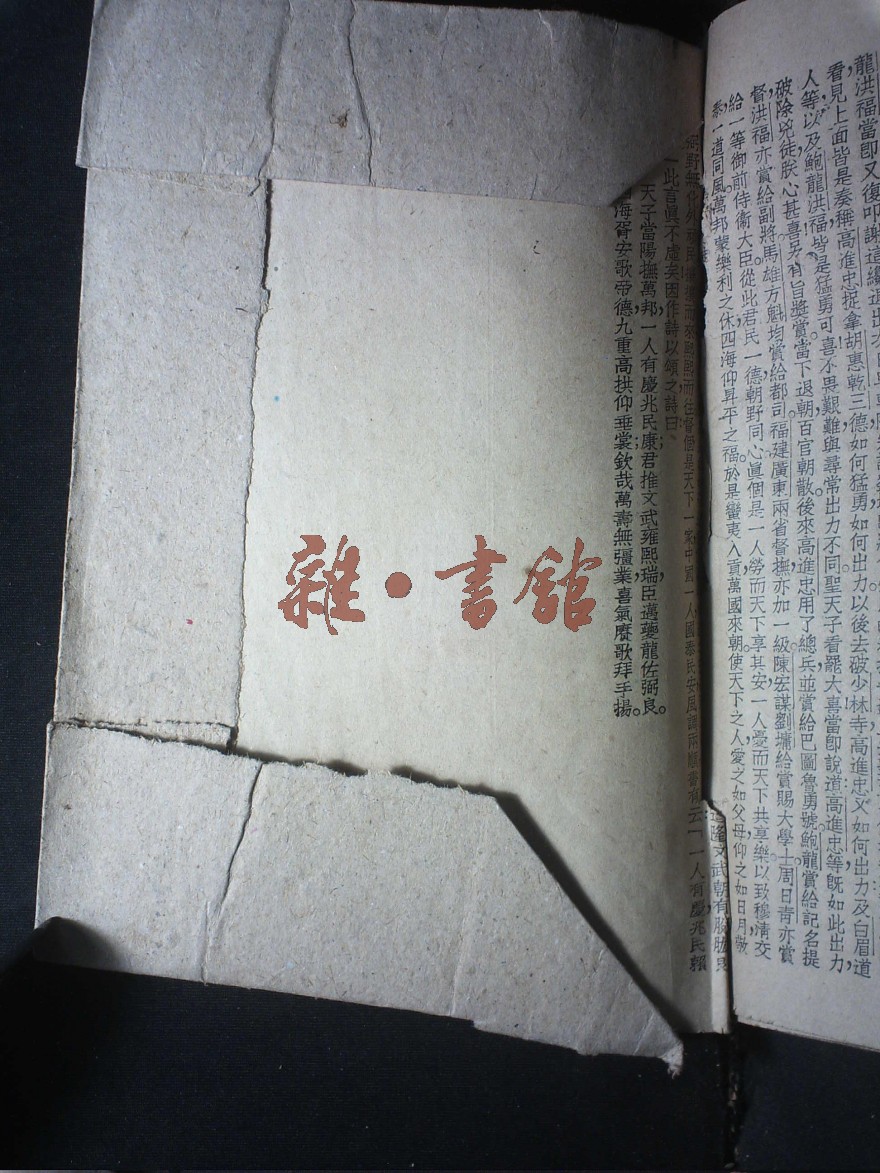 龍洪福當卽又復叩謝這纔退出
看見上面皆是奏稱高進忠捉拿胡惠乾三德如何猛勇如何出力以後去破少林寺高進忠又如何出力及白眉道
人等以及鮑龍洪福皆是猛勇可喜不畏艱難與尋常出力不同聖天子看罷大喜當卽說道高進忠等旣如此出力，
破除兇徒朕心甚喜另有旨獎賞當下退朝百官朝散後來高進忠用了總兵並賞給巴圖魯勇號鮑龍賞給記名提
督洪福亦賞給副將馬雄方魁均賞給都司福建廣東兩省督撫亦加一級陳宏謀劉墉給賞賜大學士周日青亦賞
給一等御前侍衞大臣從此君民一德朝野同心眞個是一人勞而天下享其安一人憂而天下共享樂以致穆清交
泰一道同風萬邦蒙樂利之休四海仰昇平之福於是蠻夷入貢萬國來朝使天下之人愛之如父母仰之如日月敬
隆文武朝有股肱良
野無化外頑民攘攘而來熙熙而往眞個是天下一家中國一人國泰民安風調雨順書有云「一人有慶兆民賴
」此言眞不虛矣因作詩以頌之詩曰、
天子當陽撫萬邦，一人有慶兆民康君推文武雍熙瑞，臣邁夔龍佐弼良。
海胥安歌帝德，九重高拱仰垂裳；欽哉萬壽無彊業，喜氣賡歌拜手揚。
雜·書館